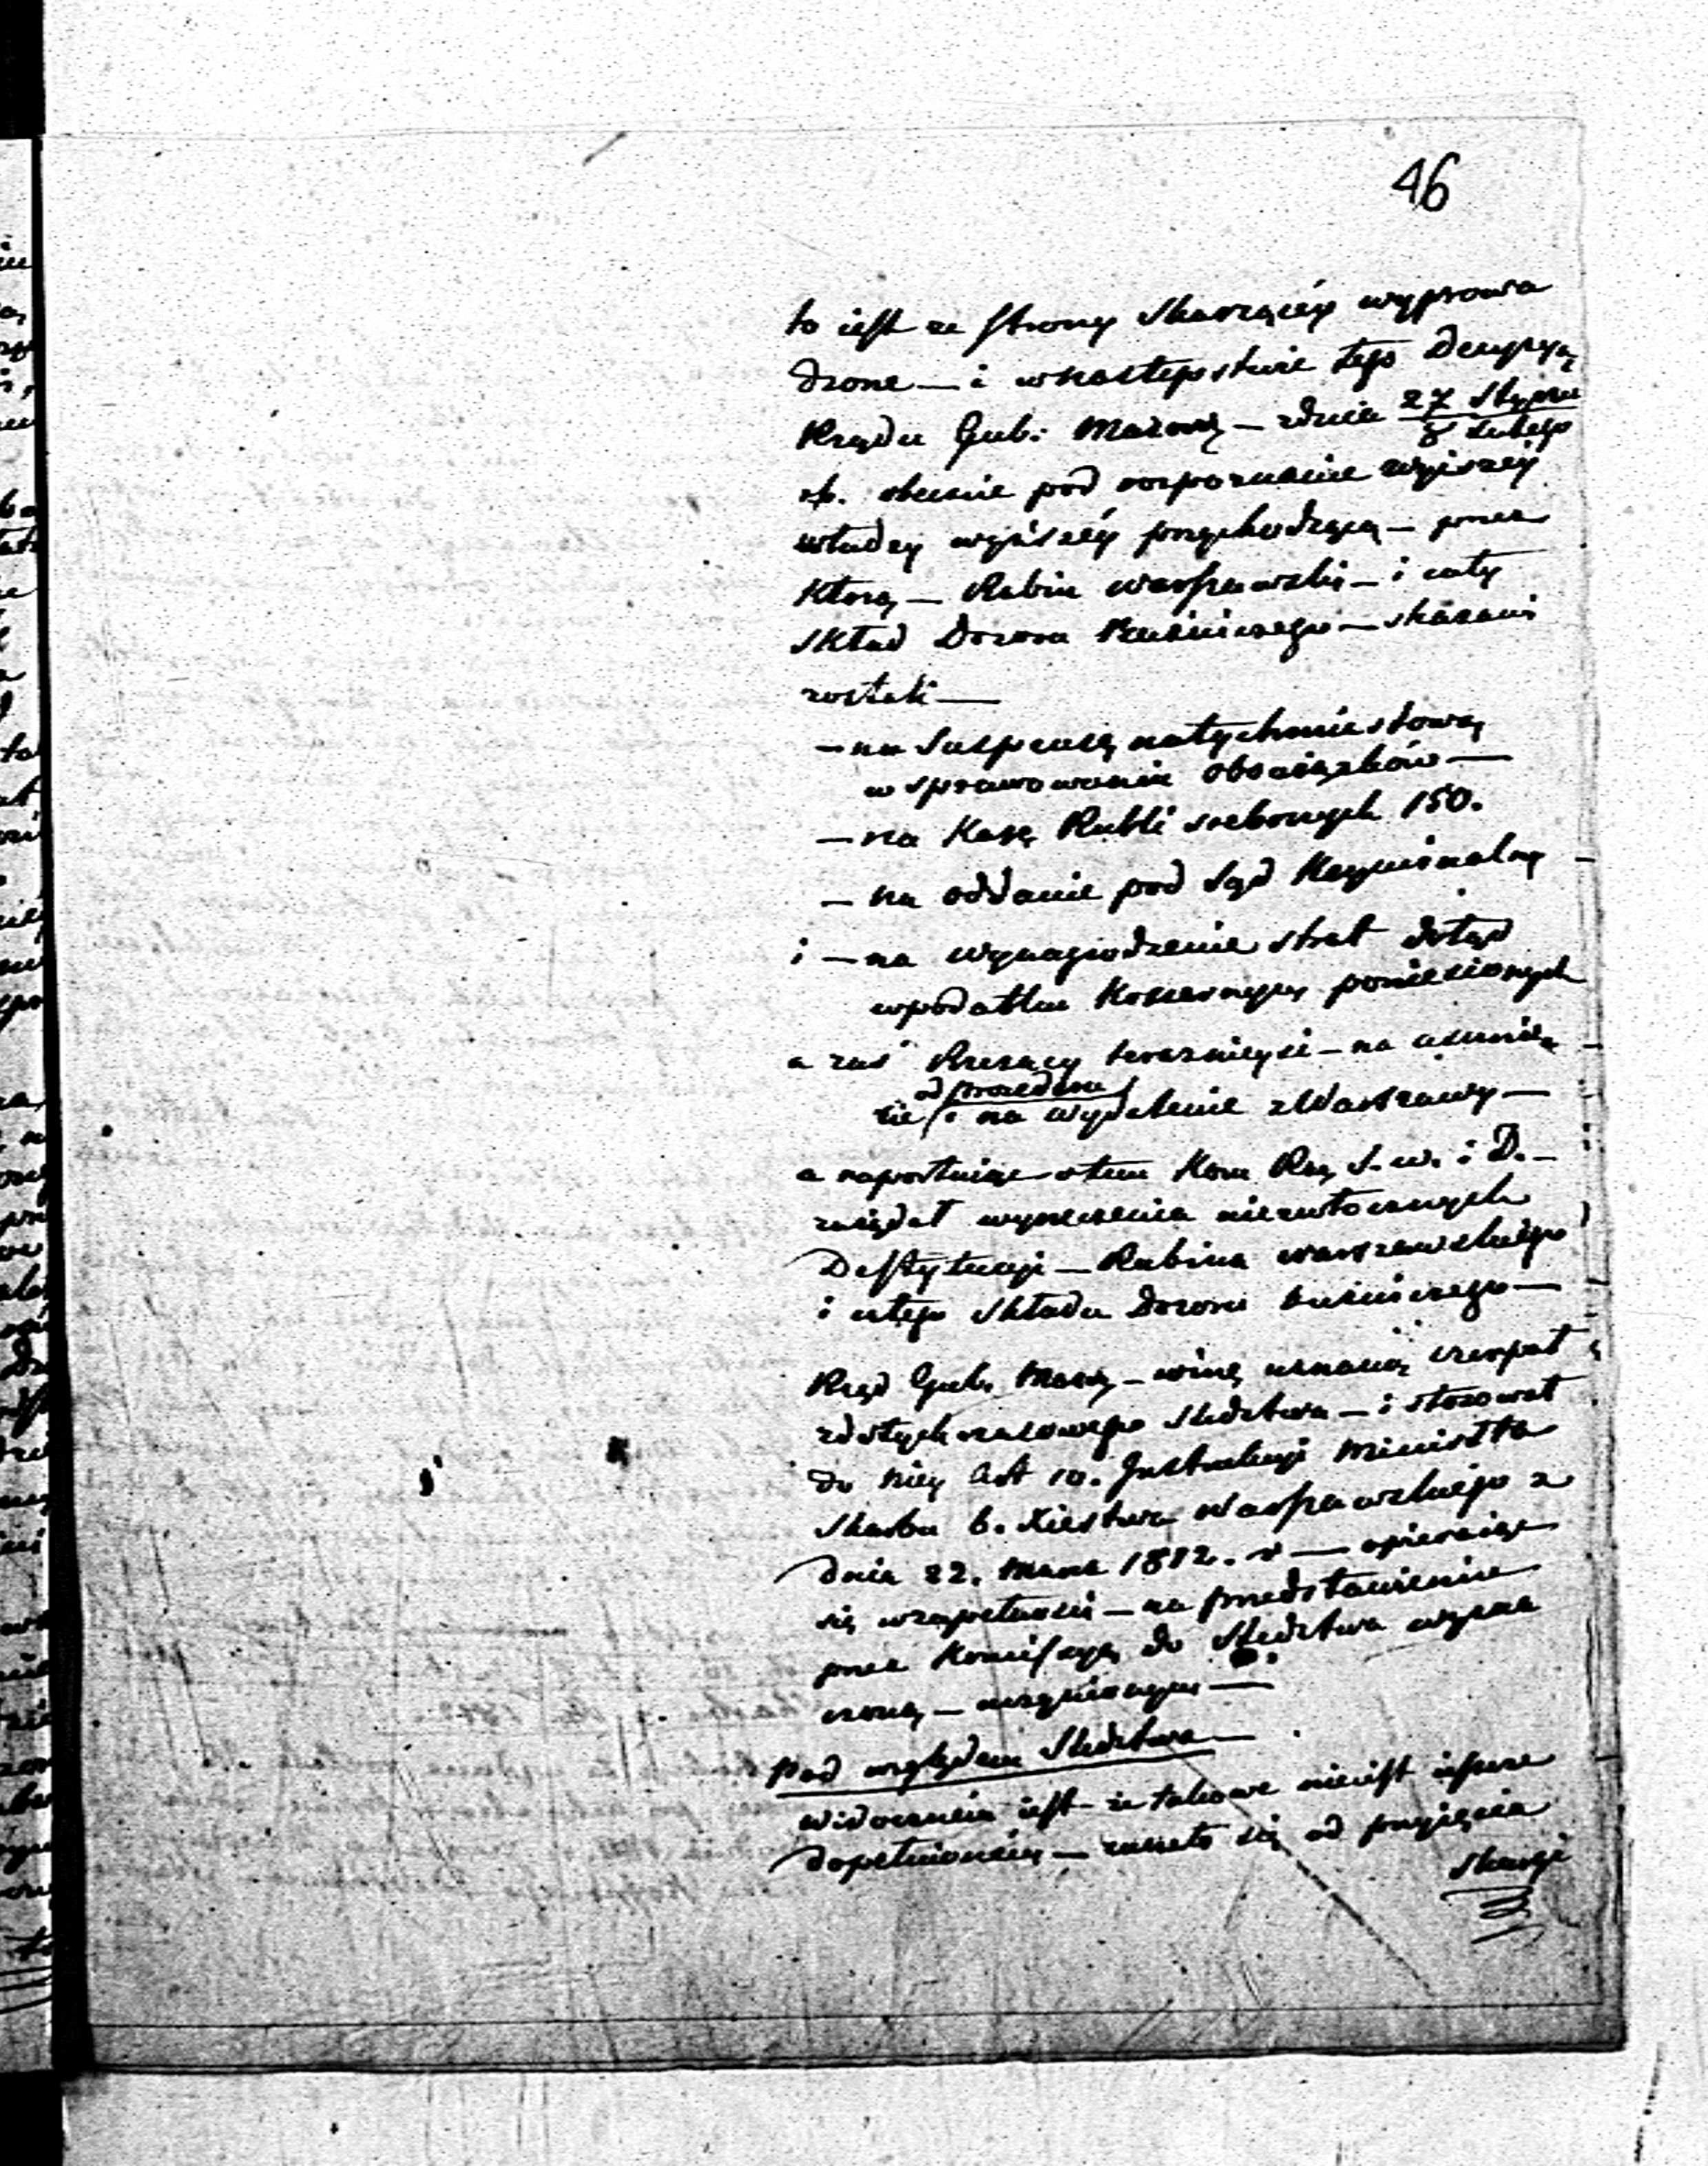 46
to iest ze strony Skarżącéy wyprowa
dzone — i w następstwie tego Decyzyą
Rządu Gub. Mazow — z dnia 27 Stycznia
8 Lutego
rb. obecnie pod rozpoznanie wyższey
władzy wyższéy przychodzącą — przez
którą — Rabin warszawski — i cały
skład Dozoru Bużniczego — skazani
zostali —
— na Suspensę natychmiastową
w sprawowaniu obowiązków —
— na Karę Rubli srebrnych 150.
— na oddanie pod Sąd Kryminalny
i — na wynagrodzenie strat dotąd
w podatku Koszernym poniesionych
a zaś Rzezacy teraznieysi — na usunię
od procederu
cie / i na wydalenie z Warszawy —
a raportuiąc o tem Kom Rzą S. w. i D. —
zażądał wyrzeczenia niezwłocznych
Destytucyi — Rabina warszawskiego
i całego Składu Dozoru bużniczego —
Rząd Gub. Mazo — winę uznaną czerpał
z dotychczasowego Sledztwa — i stosował
do niey Art 10. Instrukcyi Ministra
Skarbu b. Xięstwa Warszawskiego z
dnia 22. Marca 1812. r — opieraiąc
się w zupełności — na przedstawienie
przez Komissyą do Sledztwa wyzna
czoną — uczynionym —
Pod względem Sledztwa —
widocznem iest — że takowe nieiest ieszcze
dopełnionem — zaczęło się od przyięcia
skargi